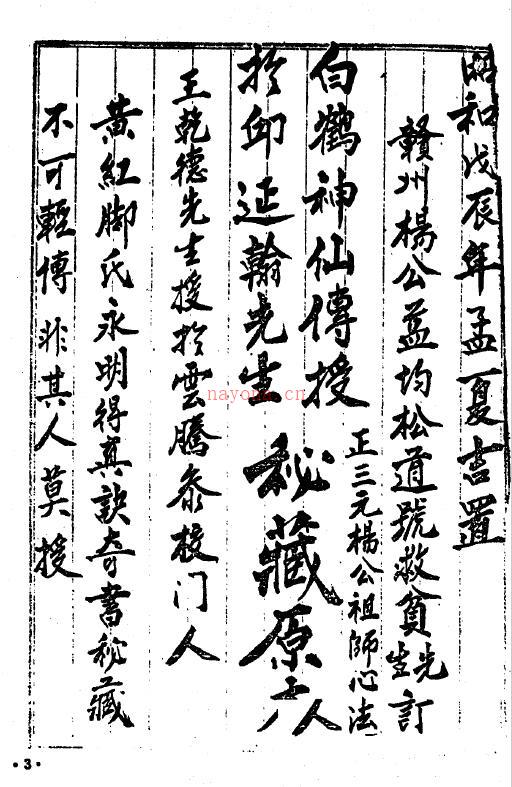 昭和戊辰年孟夏吉置
贛州楊公益均松道號救貧先生訂
白鶴神仙傳授 正三元楊公祖師心法
於邱延翰先生 秘藏原人
王乾德先生授於雲騰泰校门人
黃紅脚氏永明得真訣奇書秘藏
不可輕傳非其人莫授
nayona.cn
·3·